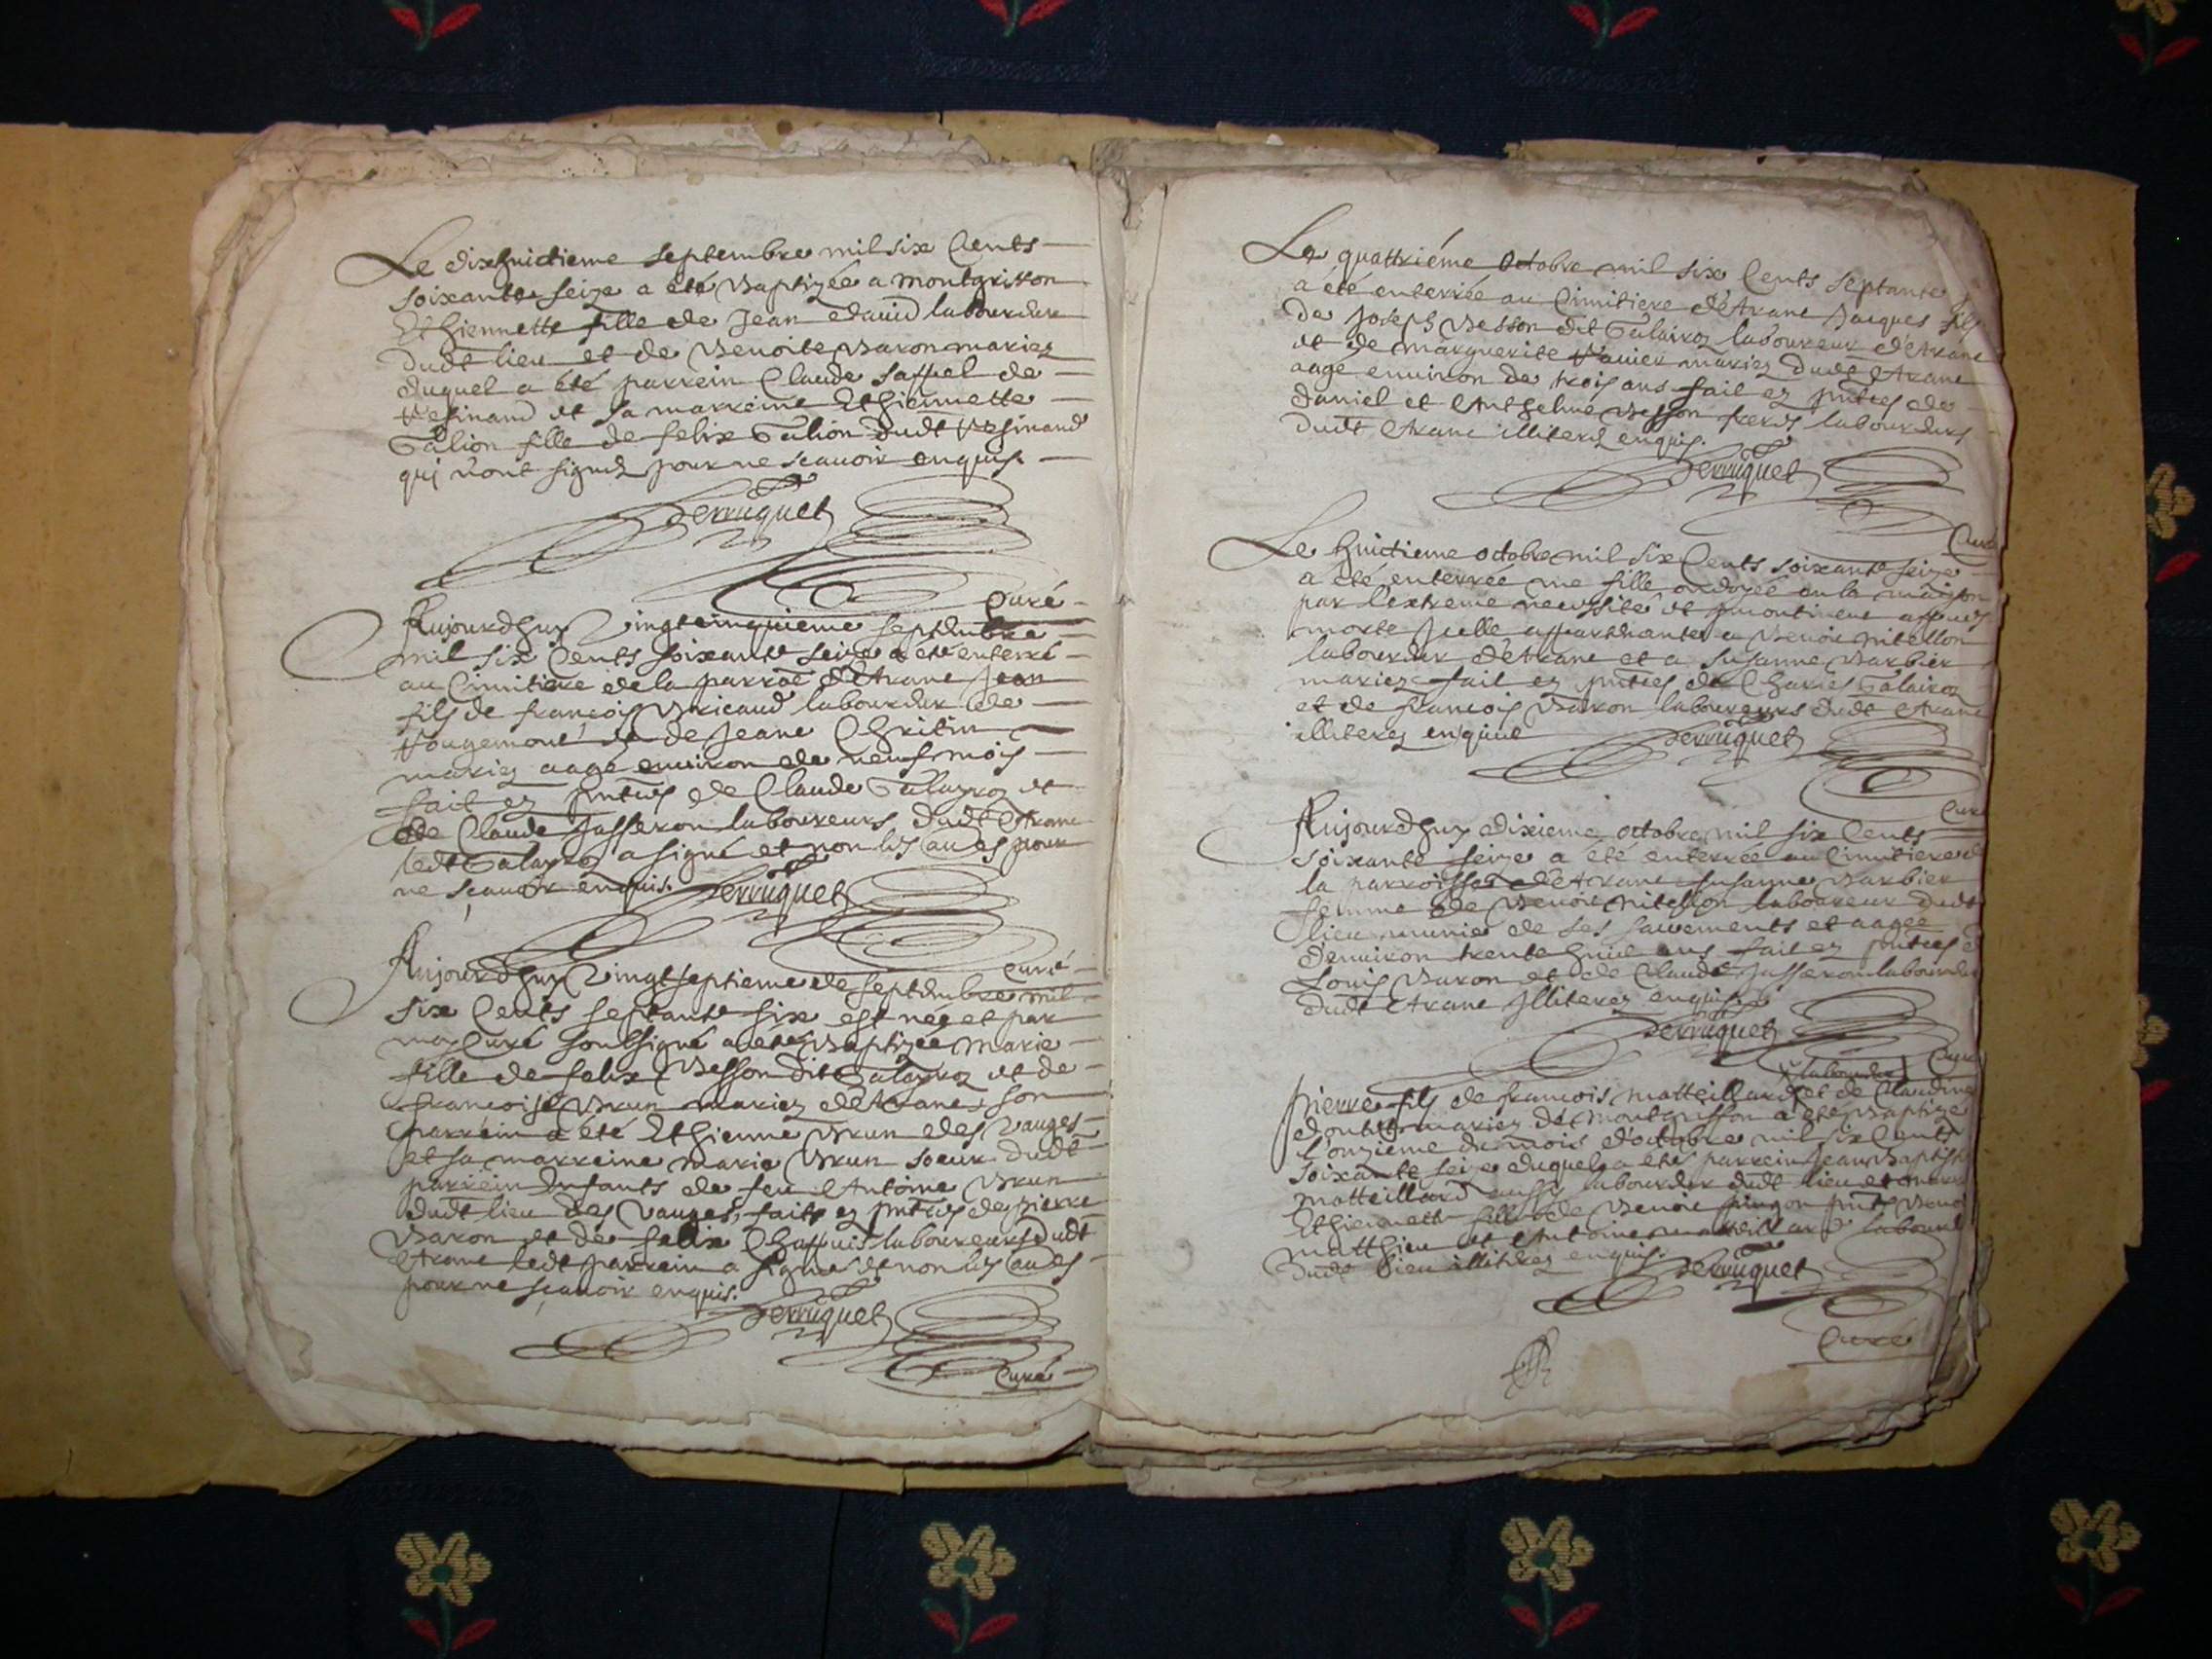 Le dixhuictieme septembre mil six Cents
soixante seize a été Baptizée a montgriffon
Ethiennette fille de Jean david laboureur
dudt lieu et de Benoite Baron mariez
duquel a été parrein Claude sappel de
Resinand et sa marreine Ethiennette
Galion fille de felix Galion dudt Resinand
qui n'ont signez pour ne scauoir enquis
Perruquet
Curé
Aujourdhuy vingtcinquieme septembre
mil six Cents soixante seize a été enterré
au Cimitiere de la parroe d'Arane Jean
fils de francois Bricaud laboureur de
Rougemont et de Jeane Chritin
mariez aagé enuiron de neuf mois
fait ez pntces de Claude Galayroz et
de Claude Jasseron laboureurs dudt Arane
ledt Galayroz a signé et non les aues pour
ne scauoir enquis. Perruquet
Curé
Aujourdhuy vingtseptieme de septembre mil
six Cents septante six est née et par
moy Curé soubsigné a été Baptizée marie
fille de felix Besson dit Galayroz et de
francoise Brun mariez d'Arane son
parrein a été Ethienne Brun des vauges
et sa marreine marie Brun soeur dudt
parrein enfants de feu Antoine Brun
dudt lieu des vauges, fait ez pntces de pierre
Baron et de felix Chappuis laboureurs dudt
Arane ledt parrein a signé et non les aues
pour ne scauoir enquis.
Perruquet
Curé
Le quattriéme Octobre mil six Cents septante
a été enterrée au Cimitiere d'Arane Jacques fils
de Joseph Besson dit Galairoz laboureur d'Arane
et de marguerite mariez dudt Arane
aagé enuiron de trois ans fait ez pntces de
daniel et Anthelme Besson freres laboureurs
dudt Arane illiterez enquis.
Perruquet
Curé
Le huictieme octobre mil six Cents soixante seize
a été enterrée une fille ondoyée en la maison
par l'extreme necessité et promtement appres
morte Icelle appartenante a Benoit
laboureur d'Arane et a Susanne Barbier
mariez fait ez pntces de Charles Galairoz
et de francois Baron laboureurs dudt Arane
illiterez enquis
Perruquet
Curé
Aujourdhuy dixieme octobre mil six Cents
soixante seize a été enterrée au Cimitiere de
la parroisse d'Arane Susanne Barbier
femme de Benoit laboureur dudt
lieu munie de ses sacrements et aagée
d'enuiron trente huit ans fait ez pntces de
Louis Baron et de Claude Jasseron laboureurs
dudt Arane Illiterez enquis.
Perruquet
Curé
laboureur
pierre fils de francois matteillard et de Claudine
mariez de montgriffon a été Baptizé
l'onzieme du mois d'octobre mil six Cents
soixante seize duquel a été parrein Jean Baptiste
matteillard aussy laboureur dudt lieu et
Ethiennette fille de Benoit pingon
matthieu et Antoine matteillard
dudt lieu illiterez enquis.
Perruquet
Curé